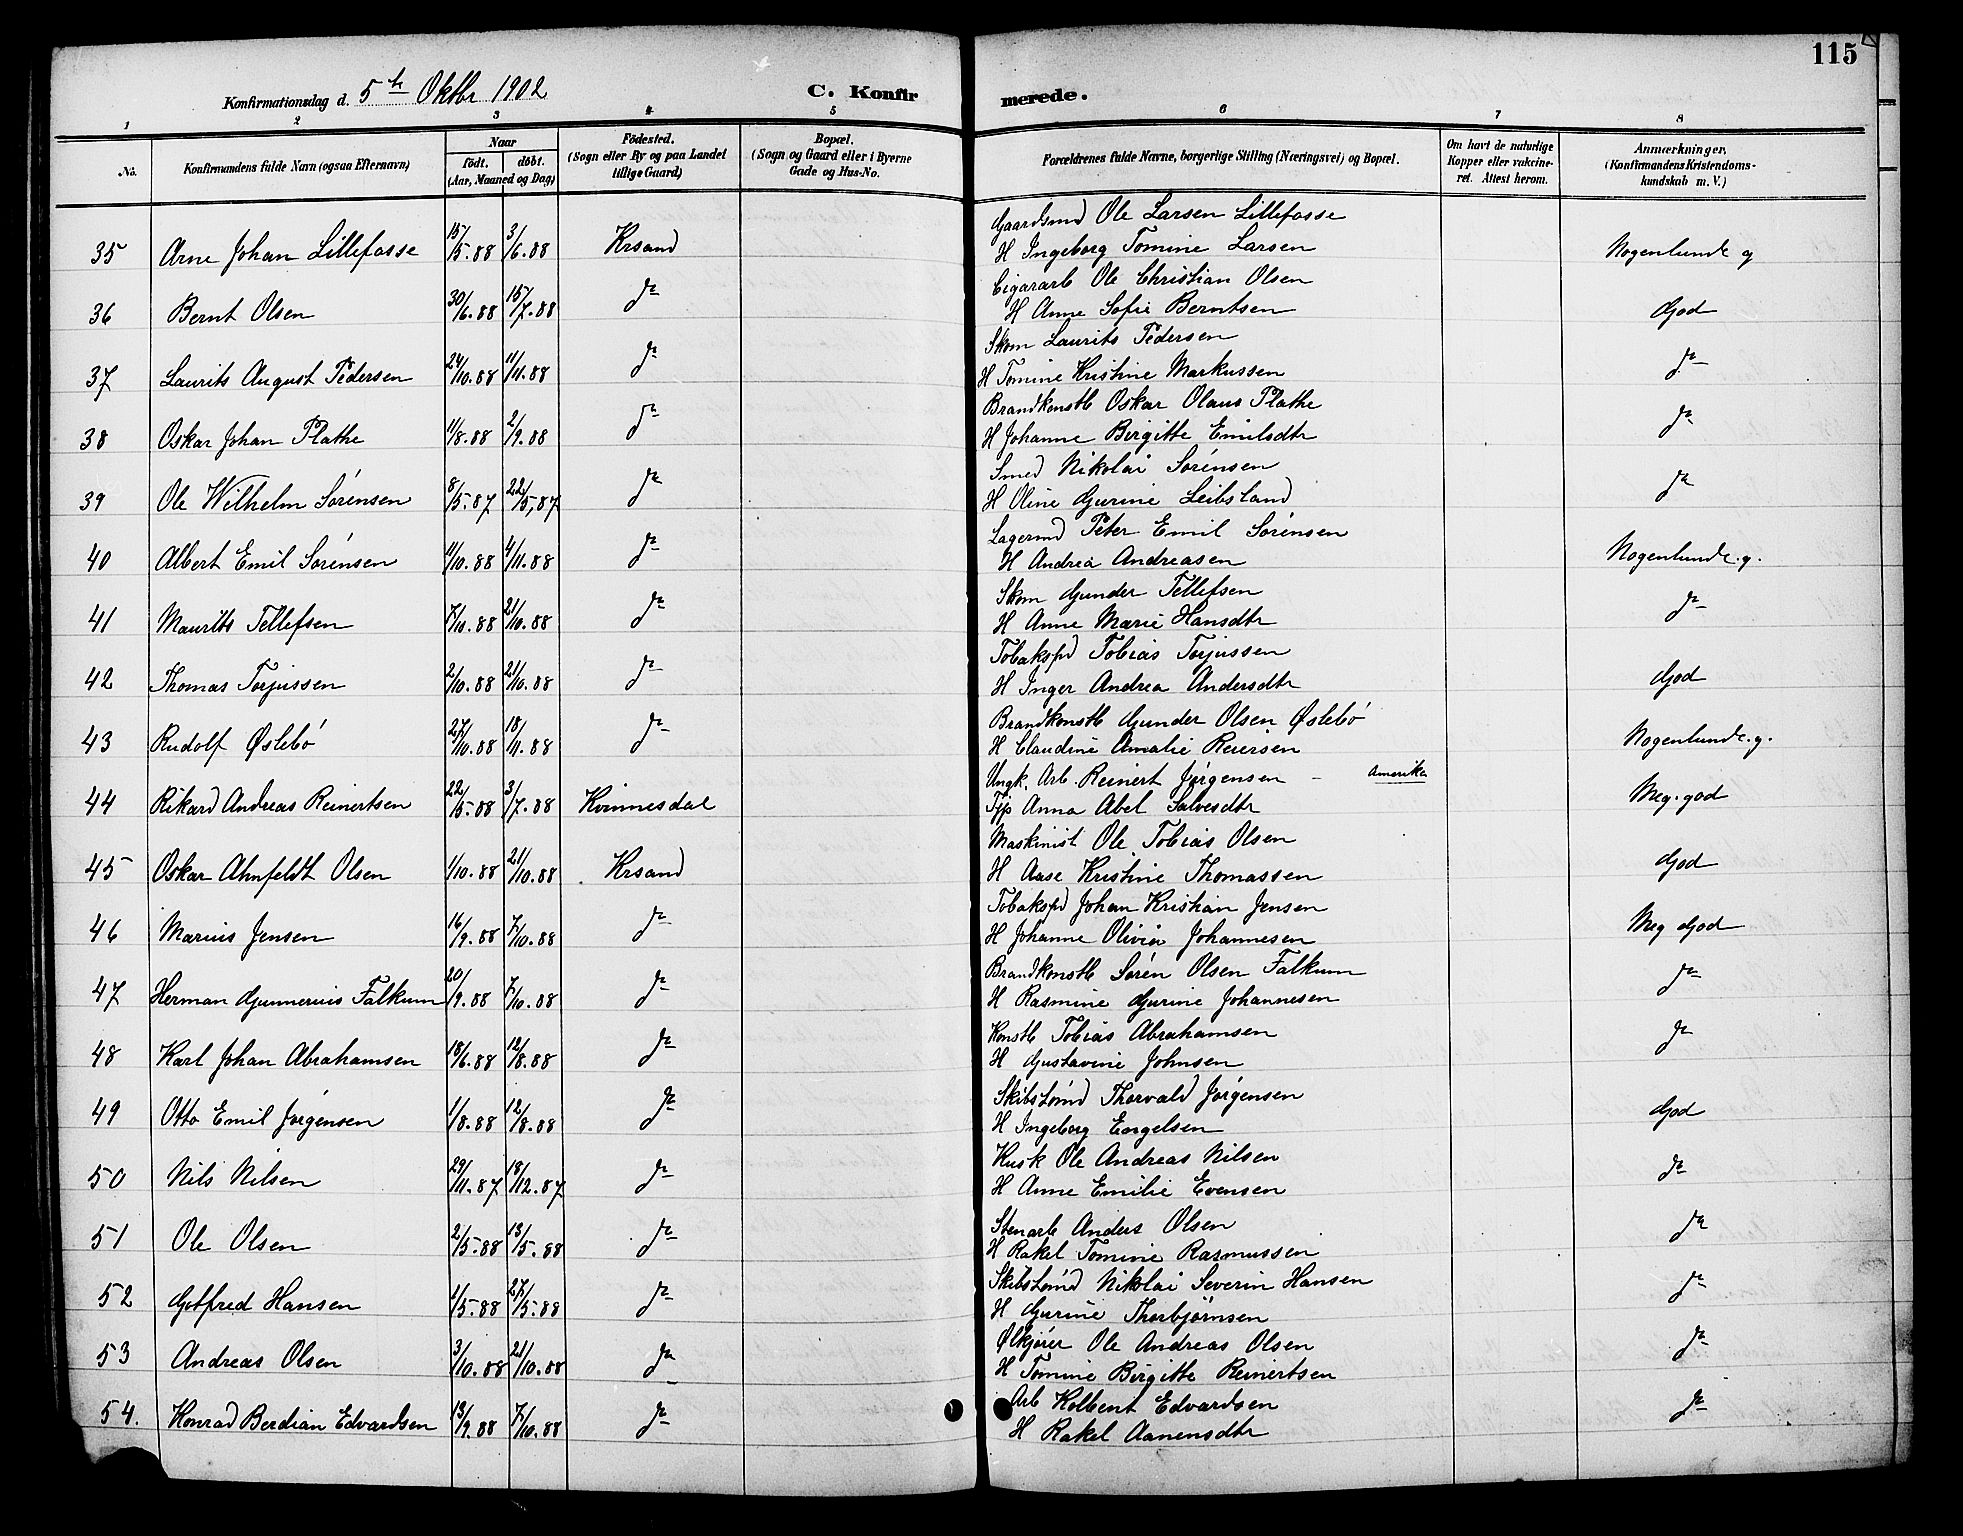 115
Konfirmationsdag d. 5te Oktbr 1902 C. Konfirmerede.
1 2 3 4 5 6 7 8
No. Konfirmandens fulde Navn (ogsaa Efternavn) Naar födt. döbt. (Aar, Maaned og Dag) Födested. (Sogn eller By og paa Landet tillige Gaard) Bopæl. (Sogn og Gaard eller i Byerne Gade og Hus-No. Forældrenes fulde Navne, borgerlige Stilling (Næringsvei) og Bopæl. Om havt de naturlige Kopper eller vakcineret. Attest herom. Anmærkninger, (Konfirmandens Kristendomskundskab m. V.)
Gaardsmd Ole Larsen Lillefosse
35 Arne Johan Lillefosse 15/5.88 3/6.88 Krsand H Ingeborg Tomine Larsen Nogenlunde g
Cigararb Ole Christian Olsen
36 Bernt Olsen 30/6.88 15/7.88 do H Anne Sofie Berntsen God
Skom Laurits Pedersen
37 Laurits August Pedersen 24/10.88 11/11.88 do H Tomine Kristine Markussen do
Brandkonstb Oskar Olaus Plathe
38 Oskar Johan Plathe 11/8.88 2/9.88 do H Johanne Birgitte Emilsdtr do
Smed Nikolai Sørensen
39 Ole Wilhelm Sørensen 8/5.87 22/5,87 do H Oline Gurine Leibsland do
Lagermd Peter Emil Sørensen
40 Albert Emil Sørensen 11/10.88 4/11.88 do H Andrea Andreasen Nogenlunde.g.
Skom Gunder Tellefsen
41 Maurits Tellefsen 7/10.88 21/10.88 do H Anne Marie Hansdtr do
Tobakspd Tobias Torjussen
42 Thomas Torjussen 2/10.88 21/10.88 do H Inger Andrea Andersdtr God
Brandkonstb Gunder Olsen Øslebø
43 Rudolf Øslebø 27/10.88 18/11.88 do H Claudine Amalie Reiersen Nogenlunde.g.
Ungk. Arb. Reinert Jørgensen – Amerika
44 Rikard Andreas Reinertsen 22/5.88 3/7.88 Kvinnesdal Tjp Anna Abel Salvesdtr Meg.god
Maskinist Ole Tobias Olsen
45 Oskar Ahnfeldt Olsen 1/10.88 21/10.88 Krsand H Aase Kristine Thomassen God
Tobakspd Johan Kristian Jensen
46 Marius Jensen 16/9.88 7/10.88 do H Johanne Olivia Johannesen Meg God
Brandkonstb Søren Olsen Falkum
47 Herman Gunnerius Falkum 20/9.88 7/10.88 do H Rasmine Gurine Johannesen do
Konstb Tobias Abrahamsen
48 Karl Johan Abrahamsen 18/6.88 12/8.88 do H Gustavine Johnsen do
Skibstømd Thorvald Jørgensen
49 Otto Emil Jørgensen 1/8.88 12/8.88 do H Ingeborg Engelsen God
Kusk Ole Andreas Nilsen
50 Nils Nilsen 29/11.87 18/12.87 do H Anne Emilie Evensen do
Stenarb Anders Olsen
51 Ole Olsen 2/5.88 13/5.88 do H Rakel Tomine Rasmussen do
Skibstømd Nikolai Severin Hansen
52 Gotfred Hansen 1/5.88 27/5.88 do H Gurine Thorbjørnsen do
Ølkjører Ole Andreas Olsen
53 Andreas Olsen 3/10.88 21/10.88 do H Tomine Birgitte Reinertsen do
Arb Kolbent Edvardsen
54. Konrad Berdian Edvardsen 13/9.88 7/10.88 do H Rakel Aanensdtr do